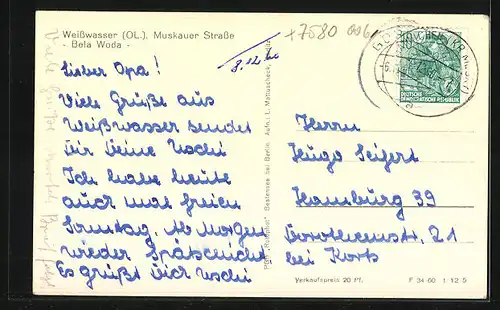 Weißwasser (OL.), Muskauer Straße
- Bela Woda -
+7580
8.12.60
Lieber Opa!
Viele Grüße aus
Weißwasser sendet
Dir Deine Uschi
Ich habe heute
auch mal freien
Sonntag. Ab Morgen
wieder Spätschicht
Es grüßt Dich Uschi
Herrn
Hugo Seifert
Hamburg 39
Dorotheenstr. 21
bei Korb
DEUTSCHE
DEMOKRATISCHE REPUBLIK
Bestensee bei Berlin
Verkaufspreis 20 Pf.
F 34 60 1 12 5